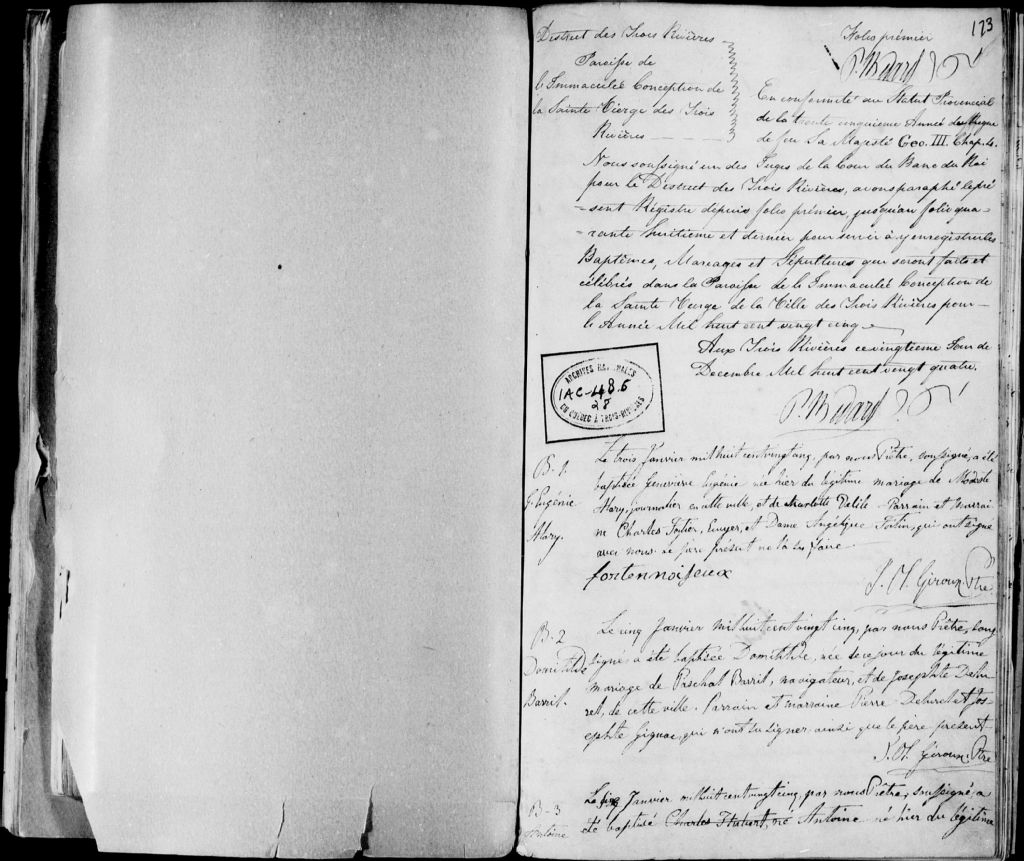 173
District des Trois Rivières
Paroisse de
l'Immaculée Conception de
la Sainte Vierge des Trois
Rivières
Folio prémier
P. Bedard
En conformité au Statut Provincial
de la trente cinquieme Année du Regne
de feu Sa Majesté Geo. III. Chap. 4.
Nous soussigné un des Juges de la Cour du Banc du Roi
pour le District des Trois Rivières, avons paraphé le pré
-sent Régistre depuis folio prémier, jusqu'au folio qua-
-rante huitieme et dernier pour servir à y enregistrer les
Baptêmes, Mariages et Sépultures qui seront faits et
célébrés dans la Paroisse de l'Immaculée Conception de
la Sainte Vierge de la Ville des Trois Rivières pour
l'Année Mil huit cent vingt cinq
Aux Trois Rivières ce vingtieme Jour de
Decembre Mil huit cent vingt quatre.
P. Bedard
ARCHIVES NATIONALES
1AC-48.6
28
DU QUÉBEC À TROIS-RIVIÈRES
B-1.
G. Eugénie
Alary.
Le trois Janvier mil huit cent vingt cinq, par nous Prêtre, soussigné, a été
baptisée Genevieve Eugénie née hier du légitime mariage de Modeste
Alary, journalier en cette ville, et de Charlotte Delile Parrain et marrai
ne Charles Fortier, Ecuyer, et Dame Angélique qui ont signé
avec nous. Le père présent ne l'a su faire
J. M. Giroux Ptre
B-2
Domitilde
Barril.
Le cinq Janvier mil huit cent vingt cinq, par nous Prêtre, sous
signé, a été baptisée Domitilde, née de ce jour du légitime
mariage de Paschal Barril, navigateur, et de Josephte Dehu
ret, de cette ville. Parrain et marraine Pierre Dehuret et Jos-
ephte Gignac, qui n'ont su signer ainsi que le père présent
J. M. Giroux Ptre
B-3
Antoine
Le cinq Janvier mil huit cent vingt cinq, par nous Prêtre, soussigné, a
été baptisé Charles Hubert, né Antoine né hier du légitime